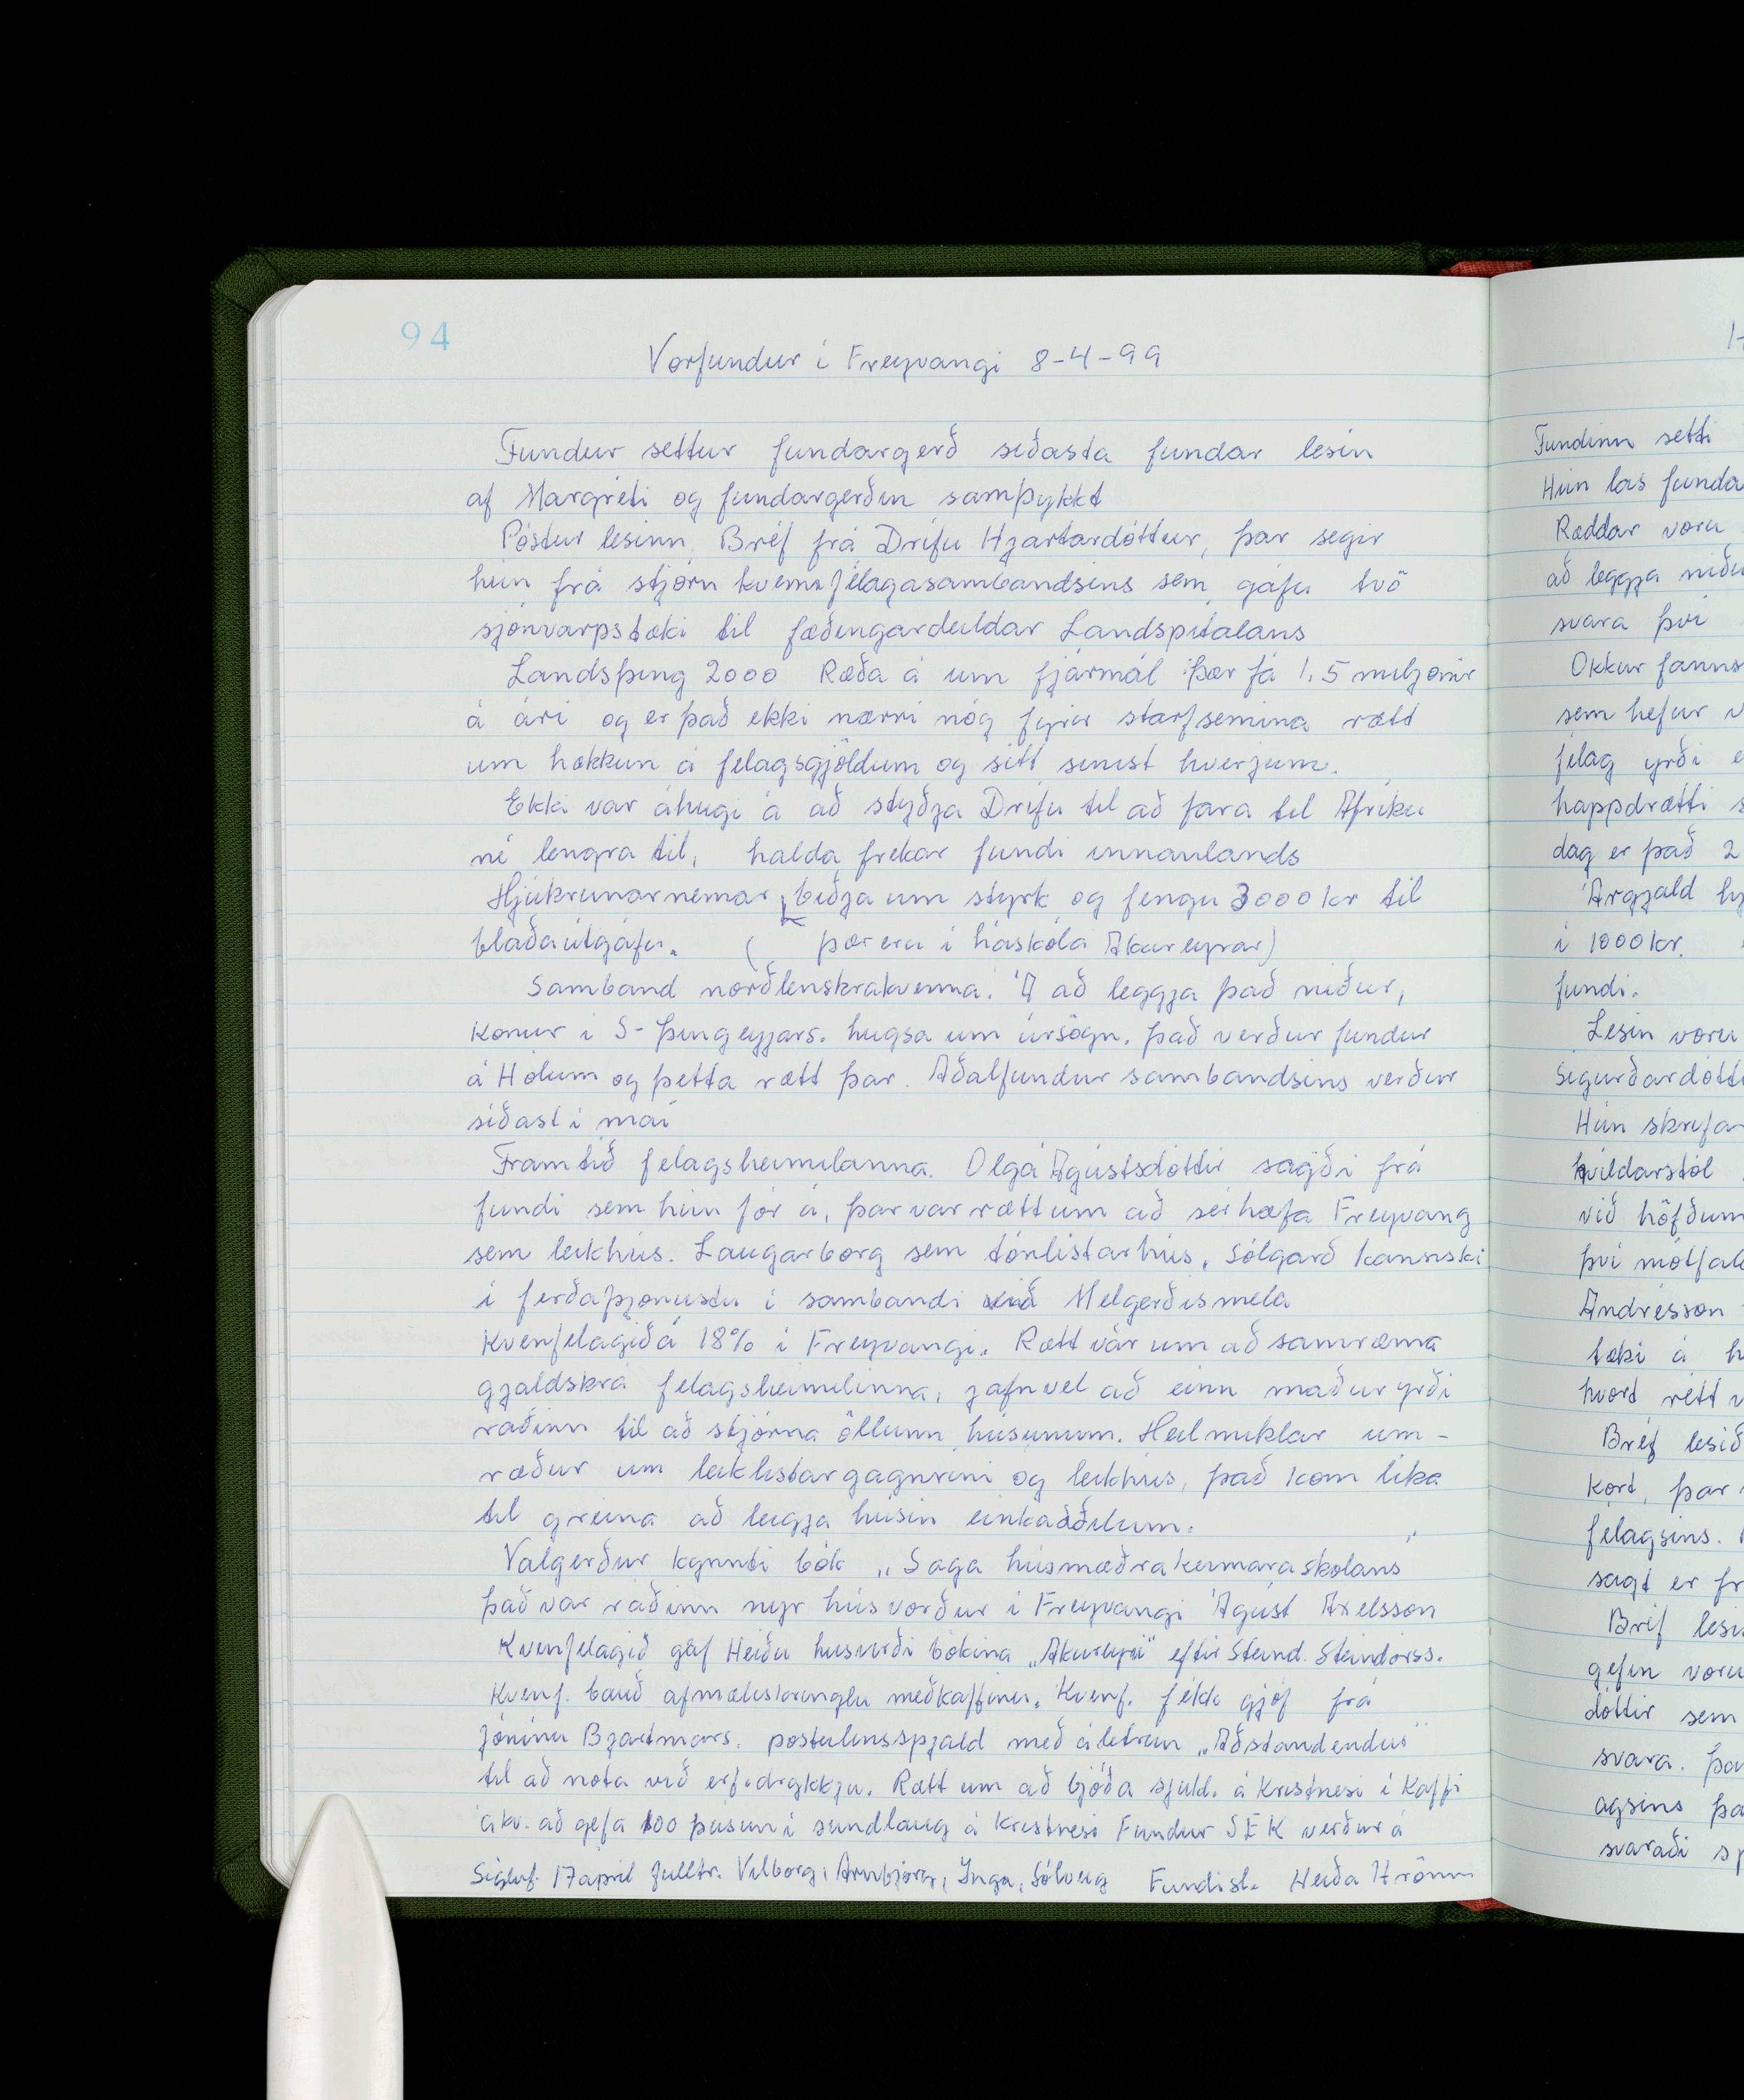 94
Vorfundur í Freyvangi 8-4-99
Fundur settur fundargerð síðasta fundar lesin
af Margréti og fundargerðin samþykkt
Póstur lesinn. Bréf frá Drífu Hjartardóttur, þar segir
hún frá stjórn kvennfélagasambandsins sem gáfu tvö
sjónvarpstæki til fæðingardeildar Landspítalans
Landsþing 2000 Ræða á um fjármál þær fá 1,5 miljónir
á ári og er það ekki nærri nóg fyrir starfsemina rætt
um hækkun á felagsgjöldum og sitt sinist hverjum.
Ekki var áhugi á að styðja Drífu til að fara til Afríku
né lengra til, halda frekar fundi innanlands
Hjúkrunarnemar biðja um styrk og fengu 3000 kr til
blaðaútgáfu. ( þær eru í háskóla Akureyrar)
Samband norðlenskrakvenna. Á að leggja það niður,
konur í S-Þingeyjars. hugsa um úrsögn. það verður fundur
á Hólum og þetta rætt þar. Aðalfundur sambandsins verður
síðast í maí
Framtíð felagsheimilanna. Olga Ágústsdóttir sagði frá
fundi sem hún fór á, þar var rætt um að sérhæfa Freyvang
sem leikhús. Laugarborg sem tónlistarhús, Sólgarð kannski
í ferðaþjónustu í sambandi við Melgerðismela
Kvenfelagið á 18% í Freyvangi. Rætt var um að samræma
gjaldskrá felagsheimilinna, jafnvel að einn maður yrði
raðinn til að stjórna öllunn húsunum. Heilmiklar um-
ræður um leiklistargagnrini og leikhús, það kom líka
til greina að leigja húsin einkaaðilum.
Valgerður kynnti bók „Saga húsmæðrakennaraskolans"
það var raðinn nyr húsvörður í Freyvangi Ágúst Axelsson
Kvenfelagið gaf Heiðu husverði bókina „Akureyri" eftir Steind. Steindórss.
Kvenf. bauð afmæliskringlu með kaffinu. Kvenf. fékk gjöf frá
Jónínu Bjartmars. postulinsspjald með áletrun „Aðstandendur"
til að nota við erfidrykkju. Rætt um að bjóða sjukl. á Kristnesi í kaffi
ákv. að gefa 100 þúsun í sundlaug á Kristnesi Fundur SEK verður á
Sigluf. 17 apríl fulltr. Vilborg, Arnbjörg, Inga, Sólveig Fundisl. Heiða Hrönn
Fundinn setti
Hún las funda
Ræddar voru
að leggja niðu
svara því
Okkur fanns
sem hefur
félag yrði
happdrætti
dag er það 2
Árgjald
í 1000 kr.
fundi.
Lesin voru
Sigurðardótti
Hún skrifar
hvíldarstól
við höfðum
því mótfal
Andrésson
tæki á
hvort rétt
Bréf lesið
kort, þar
felagsins.
sagt er fr
Bréf lesi
gefin voru
dóttir sem
svara. þa
agsins þa
svaraði